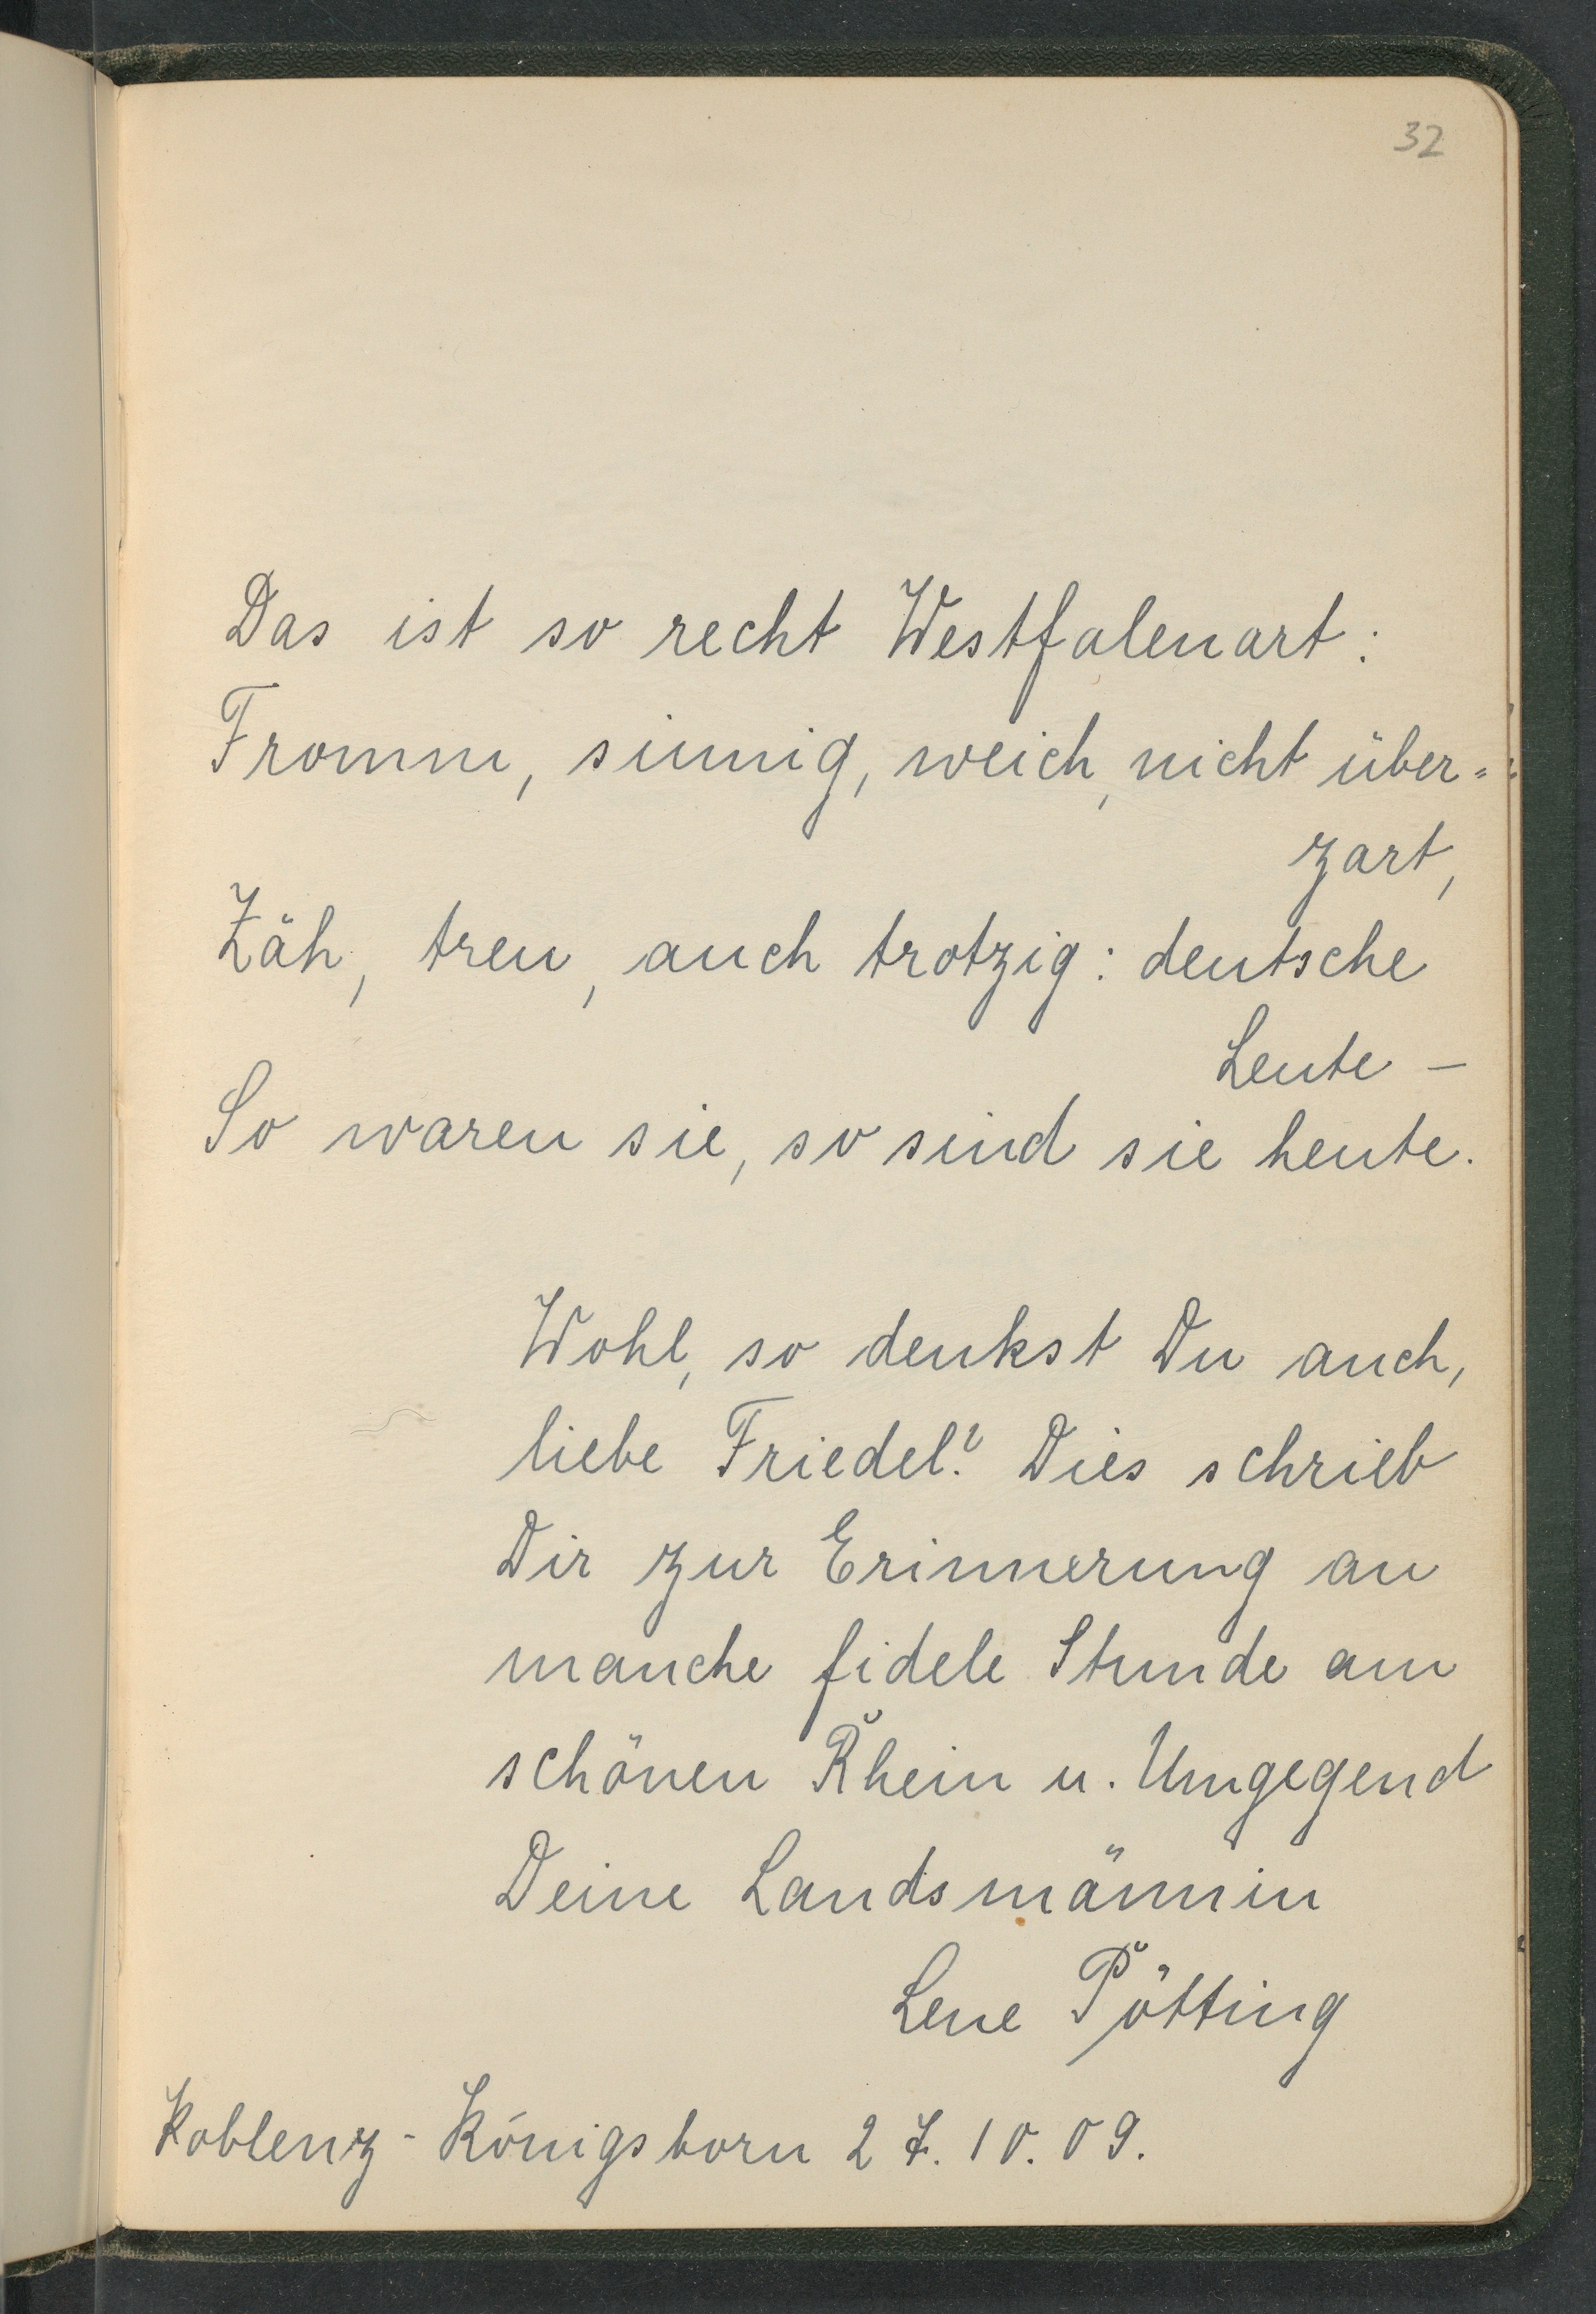 32
Das ist so recht Westfalenart:
Fromm, sinnig, weich, nicht über=
zart,
Zäh, treu, auch trotzig: deutsche
Leute –
So waren sie, so sind sie heute.
Wohl, so denkst Du auch,
liebe Friedel? Dies schrieb
Dir zur Erinnerung an
manche fidele Stunde am
schönen Rhein u. Umgegend
Deine Landsmännin
Lene Pötting
Koblenz-Königsborn 27.10.09.